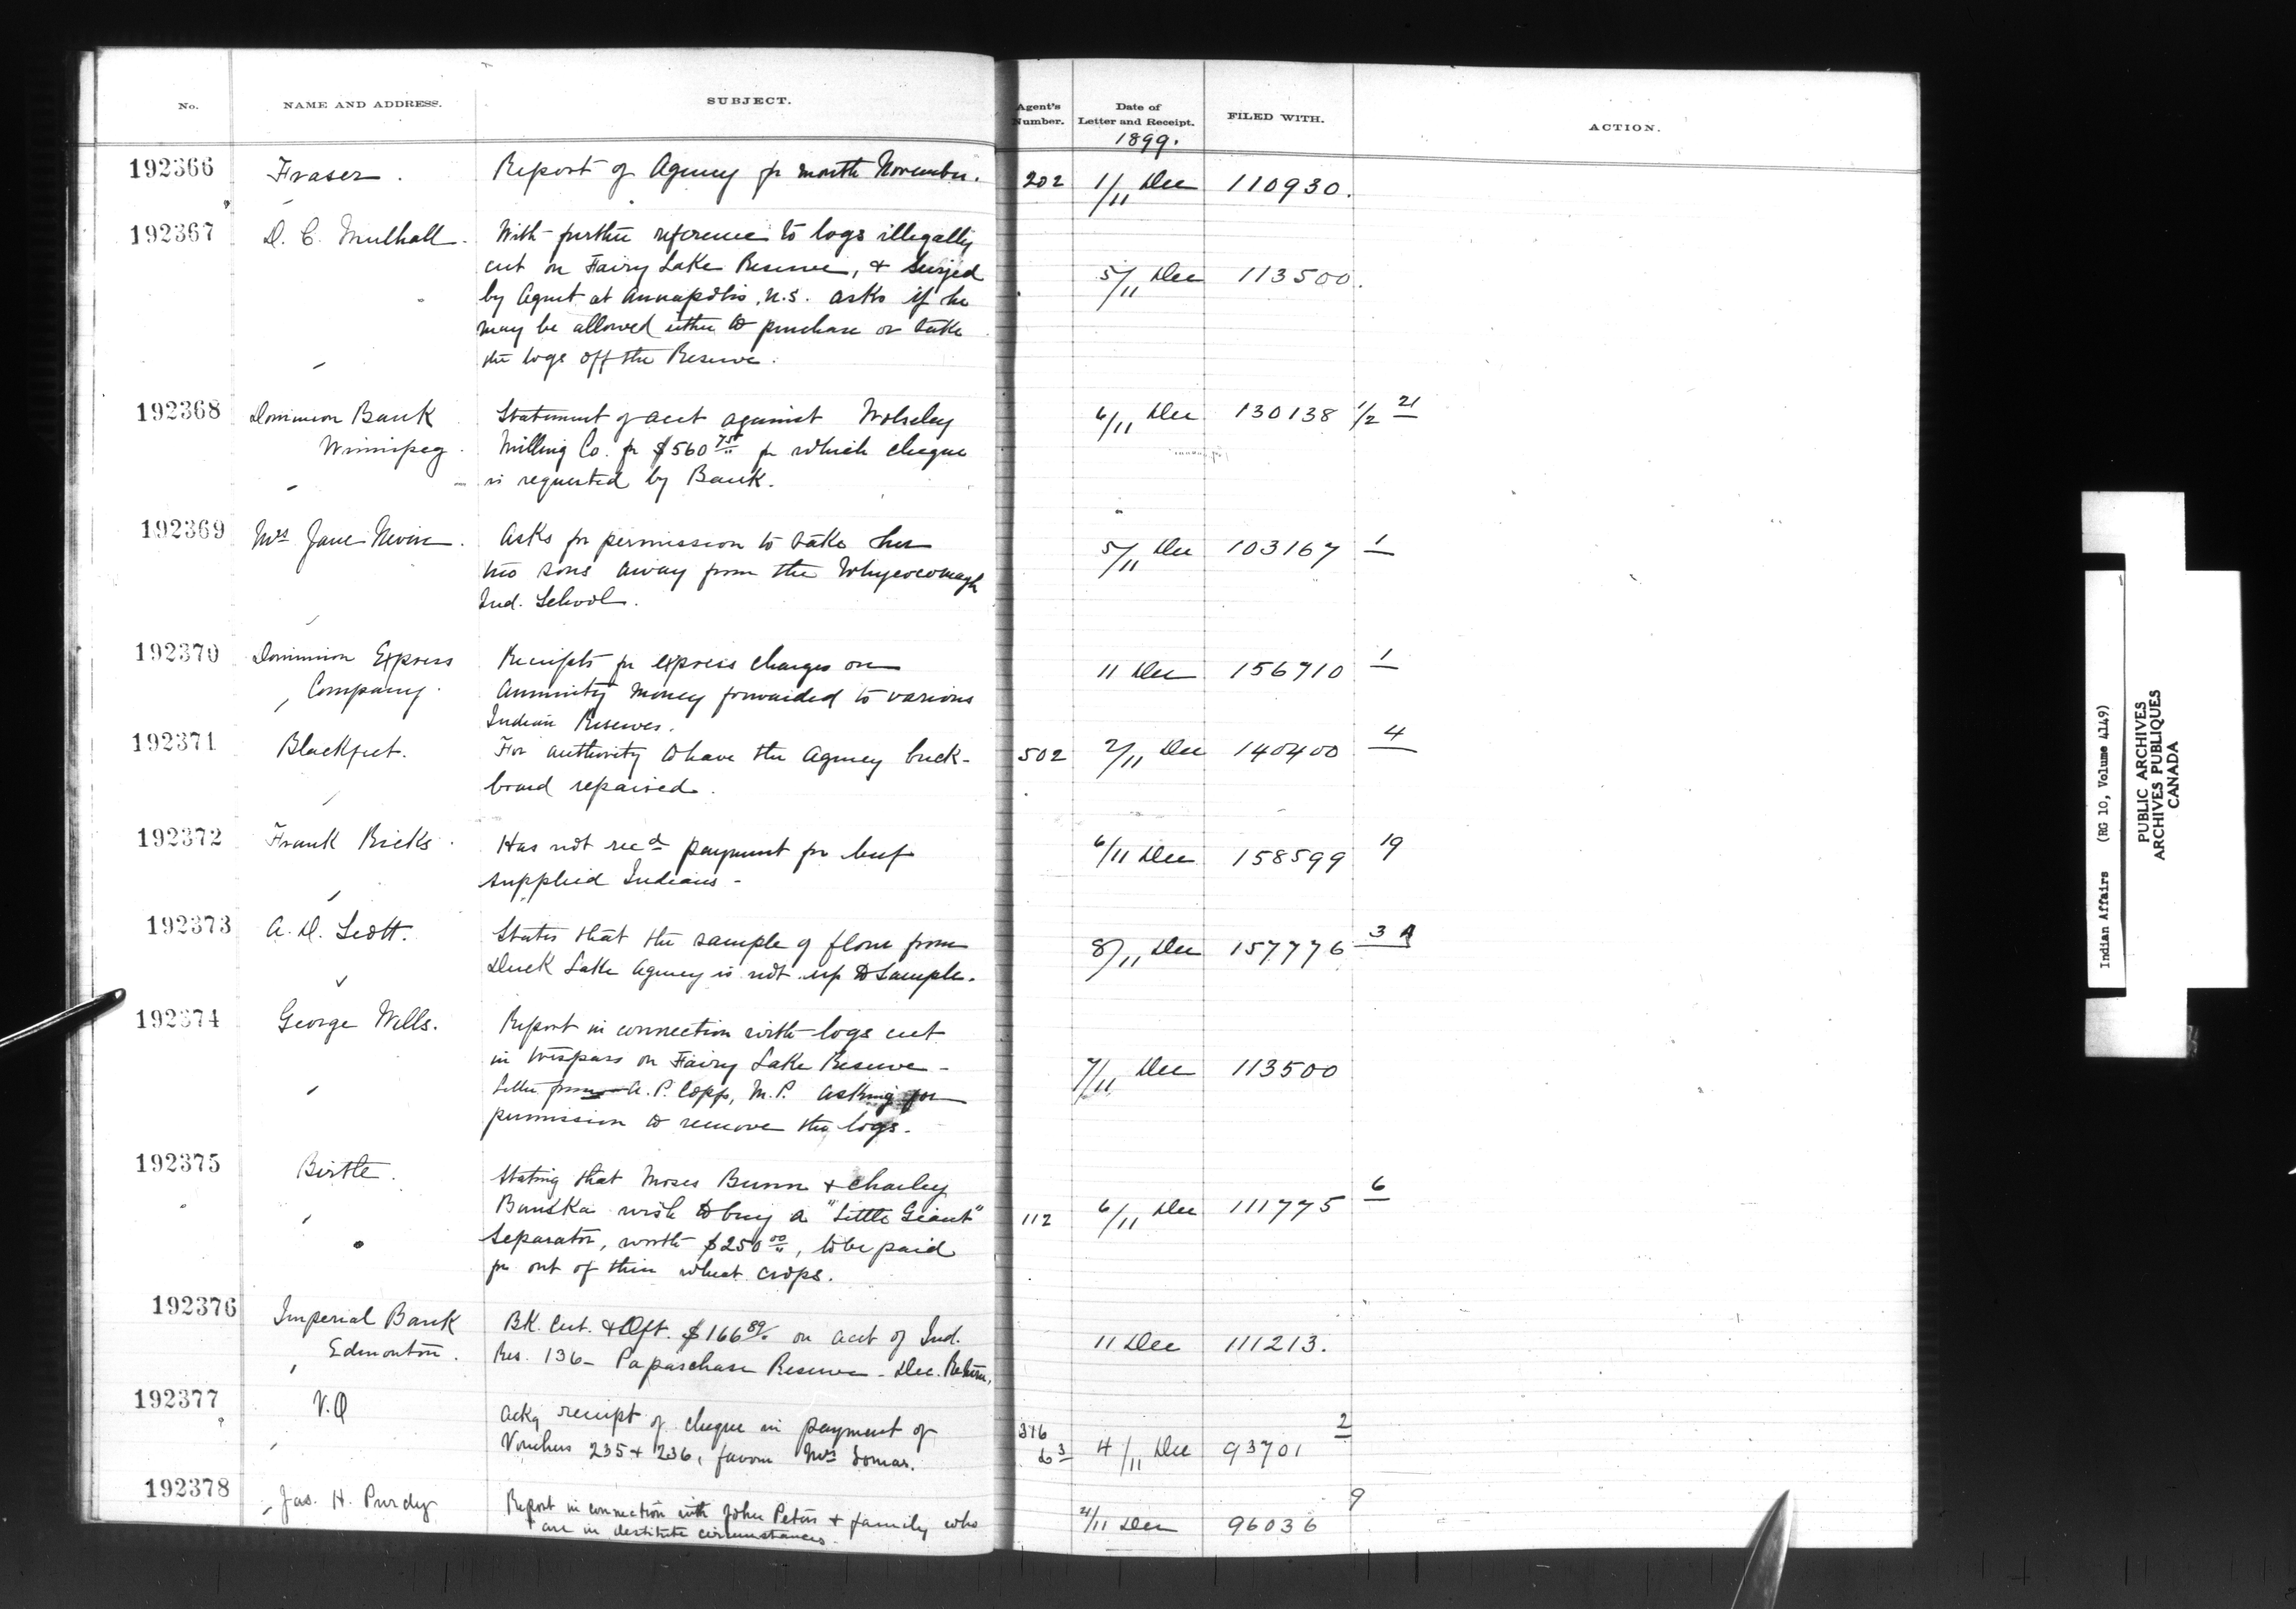 No. NAME AND ADDRESS. SUBJECT. Agent's Number. Date of Letter and Receipt. FILED WITH. ACTION.
1899.
192366 Fraser. Report of Agency for month November. 202 1/11 Dec 110930.
192367 D. C. Mulhall. With further reference to logs illegally
cut on Fairy Lake Reserve, & seized 5/11 Dec 113500.
by Agent at Annapolis, N.S. asks if he
may be allowed either to purchase or take
the logs off the Reserve.
192368 Dominion Bank Statement of acct against Wolseley 6/11 Dec 130138 1/2 21
Winnipeg. Milling Co. for $560 75 for which cheque
is requested by Bank.
192369 Mrs Jane Nevin. Asks for permission to take her 5/11 Dec 103167 1
two sons away from the Whycocomagh
Ind. School.
192370 Dominion Express Receipts for express charges on 11 Dec 156710 1
Company. Annuity money forwarded to various
Indian Reserves.
192371 Blackfeet. For authority to have the Agency buck- 502 2/11 Dec 140400 4
board repaired.
192372 Frank Bicks. Has not recd payment for beef 6/11 Dec 158599 19
supplied Indians -
192373 A. D. Scott. States that the sample of flour from 8/11 Dec 157776 3 A
Duck Lake Agency is not up to Sample.
192374 George Wells. Report in connection with logs cut
in trespass on Fairy Lake Reserve - 7/11 Dec 113500
Letter from A. P. Copp, M.P. asking for
permission to remove the logs.
192375 Birtle. Stating that Moses Bunn & Charley
Bunska wish to buy a "Little Giant" 112 6/11 Dec 111775 6
Separator, worth $250 00, to be paid
for out of their wheat crops.
192376 Imperial Bank BK. Cert. & Dft. $166 89/ on acct of Ind. 11 Dec 111213.
Edmonton. Res. 136 - Papaschase Reserve - Dec. Return.
192377 V.O Ackg receipt of cheque in payment of 316
Vouchers 235 & 236, favour Mrs Lomas. 63 4/11 Dec 93701 2
192378 Jas. H. Purdy Report in connection with John Peters & family who 9
are in destitute circumstances. /11 Dec 96036
Indian Affairs (RG 10, Volume 4149)
PUBLIC ARCHIVES
ARCHIVES PUBLIQUES
CANADA